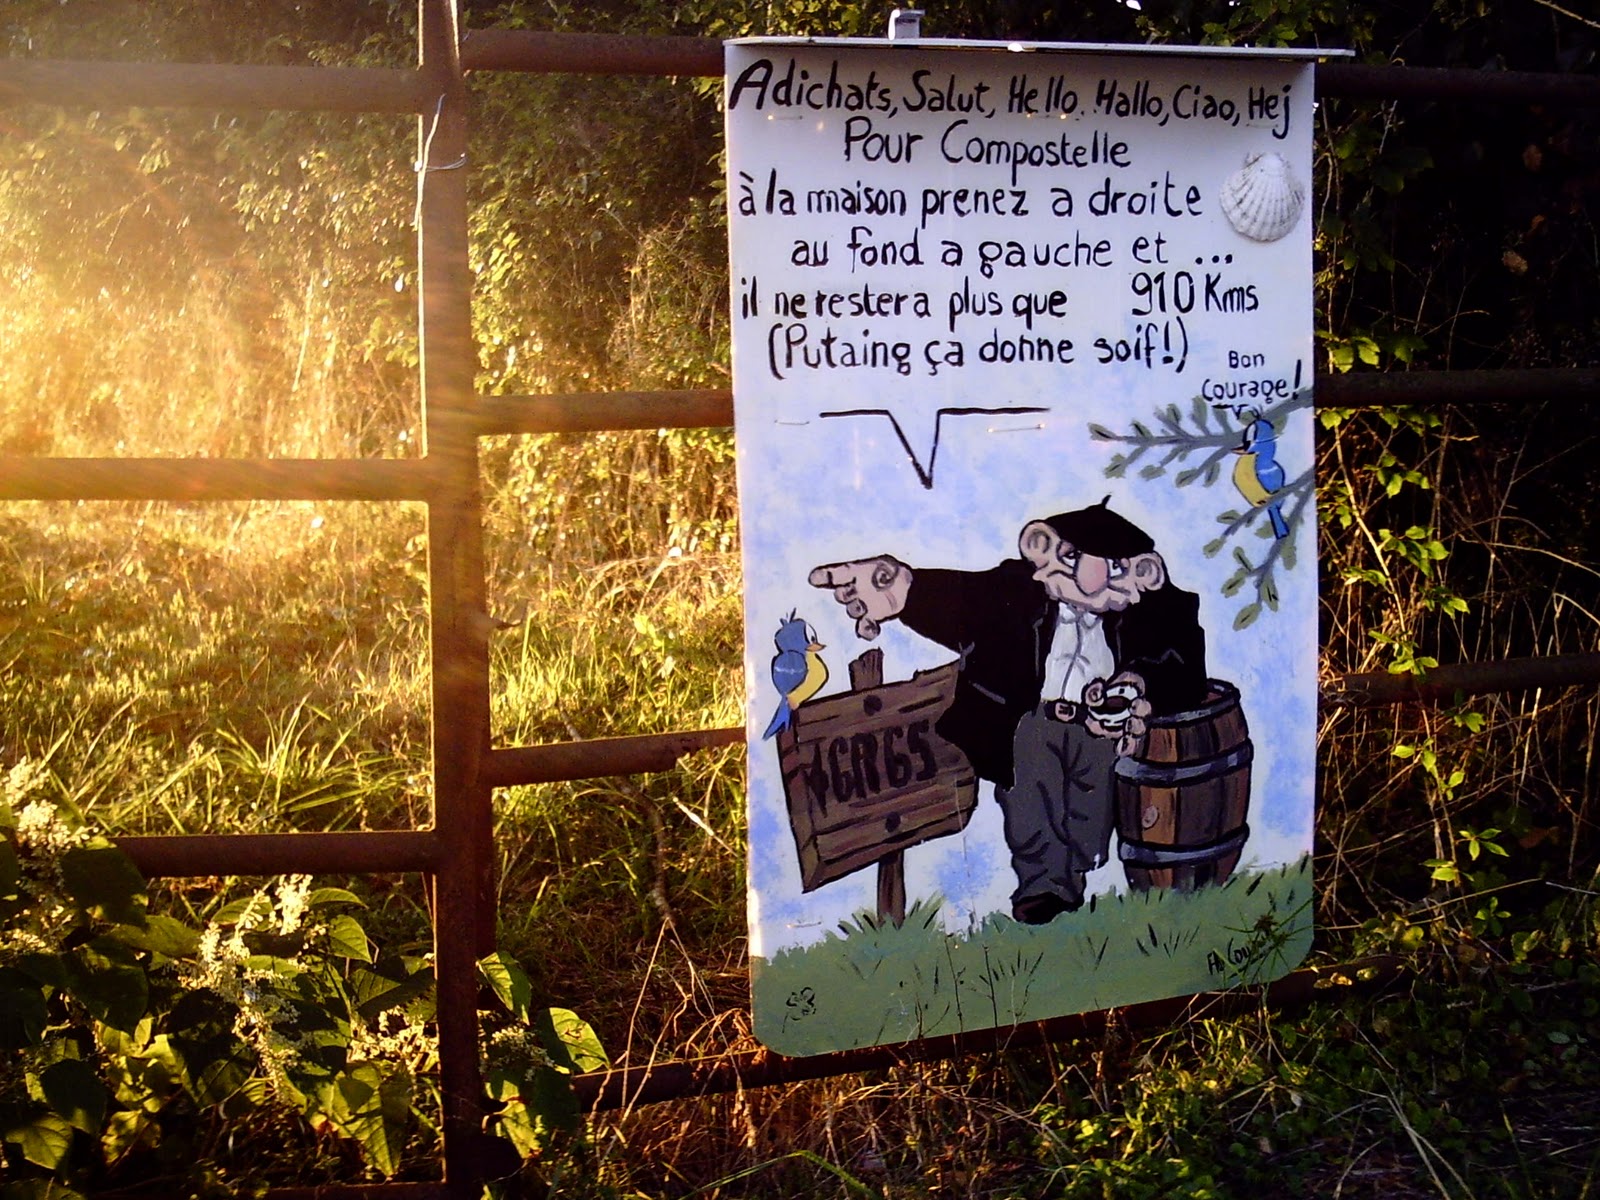 Adichats, Salut, Hello. Hallo, Ciao, Hej
Pour Compostelle
à la maison prenez a droite
au fond a gauche et ...
il ne restera plus que 910 Kms
(Putaing ça donne soif!)
Bon
Courage!
GR65